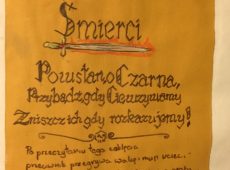 Śmierci
Powstań o Czarna,
Przybądź gdy Cię wzywamy
Zniszcz ich gdy rozkazujemy!
Po przeczytaniu tego zaklęcia
przeciwnik przegrywa walkę i musi uciec.